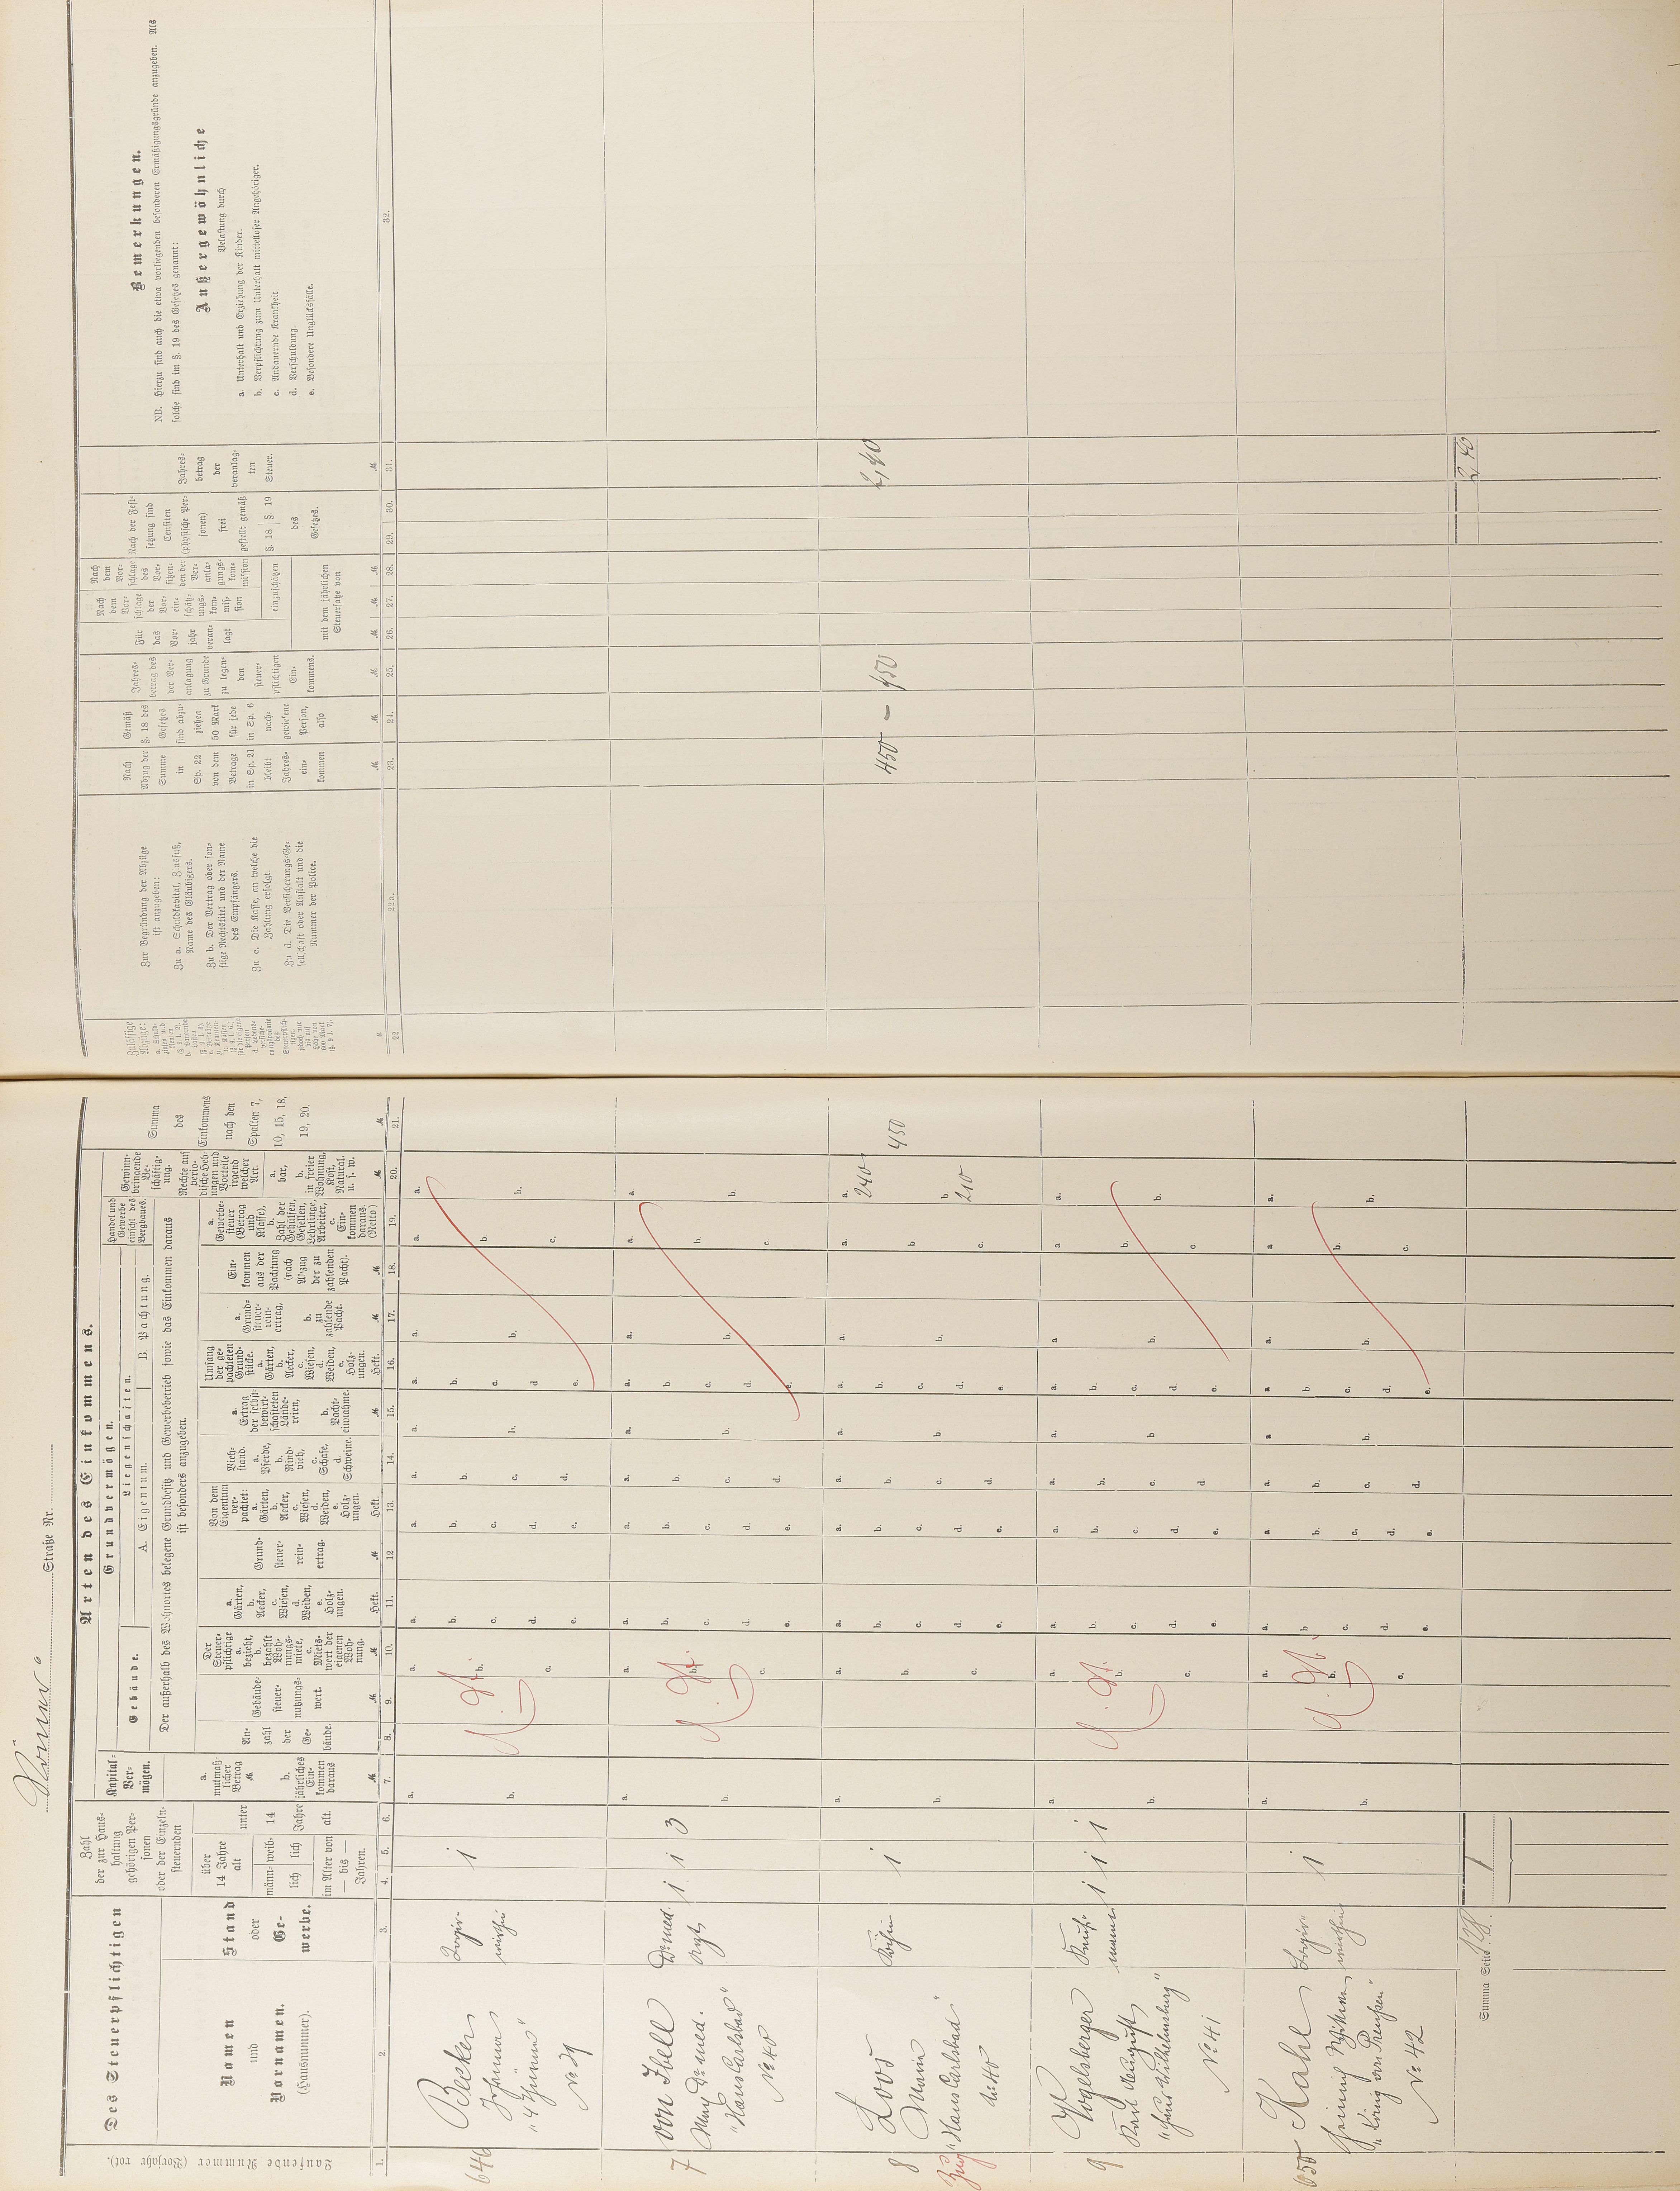 Römer
Straße Nr.
Des Steuerpflichtigen
Laufende Nummer (Vorjahr rot).
Namen
und
Vornamen.
(Hausnummer).
Stand
oder
Ge-
werbe.
Zahl
der zur Haus-
haltung
gehörigen Per-
sonen
oder der Einzeln-
steuernden
über
14 Jahre
alt
unter
14
Jahre
alt.
männ-
lich
weib-
lich
im Alter von
— bis —
Jahren.
Arten des Einkommens.
Kapital-
Ver-
mögen.
a.
mutmaß-
licher
Betrag
M
b.
jährliches
Ein-
kommen
daraus
M
Grundvermögen.
Gebäude.
Liegenschaften.
A. Eigentum.
B. Pachtung.
Der außerhalb des Wohnortes belegene Grundbesitz und Gewerbebetrieb sowie das Einkommen daraus
ist besonders anzugeben.
An-
zahl
der
Ge-
bäude.
Gebäude-
steuer-
nutzungs-
wert.
M
Der
Steuer-
pflichtige
a.
bezieht,
b.
bezahlt
Woh-
nungs-
miete,
c.
Miets-
wert der
eigenen
Woh-
nung.
M
a.
Gärten,
b.
Aecker,
c.
Wiesen,
d.
Weiden,
e.
Holz-
ungen.
Hekt.
Grund-
steuer-
rein-
ertrag.
M
Von dem
Eigentum
ver-
pachtet:
a.
Gärten,
b.
Aecker,
c.
Wiesen,
d.
Weiden,
e.
Holz-
ungen.
Hekt.
Vieh-
stand.
a.
Pferde,
b.
Rind-
vieh,
c.
Schafe,
d.
Schweine.
a.
Ertrag
der selbst-
bewirt-
schafteten
Lände-
reien,
b.
Pacht-
einnahme.
M
Umfang
der ge-
pachteten
Grund-
stücke.
a.
Gärten,
b.
Aecker,
c.
Wiesen,
d.
Weiden,
e.
Holz-
ungen.
Hekt.
a.
Grund-
steuer-
rein-
ertrag,
b.
zu
zahlende
Pacht.
M
Ein-
kommen
aus der
Pachtung
(nach
Abzug
der zu
zahlenden
Pacht).
M
Handel und
Gewerbe
einschl. des
Bergbaues.
a.
Gewerbe-
steuer
(Betrag
und
Klasse),
b.
Zahl der
Gehülfen,
Gesellen,
Lehrlinge,
Arbeiter,
c.
Ein-
kommen
daraus.
(Netto)
M
Gewinn-
bringende
Be-
schäftig-
ung.
Rechte auf
perio-
dische Heb-
ungen und
Vorteile
irgend
welcher
Art.
a.
bar,
b.
in freier
Wohnung,
Kost,
Natural.
u. s. w.
M
Summa
des
Einkommens
nach den
Spalten 7,
10, 15, 18,
19, 20.
M
1. 2. 3. 4. 5. 6. 7. 8. 9. 10. 11. 12 13. 14. 15. 16. 17. 18. 19. 20. 21.
646
Becker
Johanna
"4 Thürme"
No 39
Logir-
wirthin
1
7
von Ibell
Max Dr. med.
"Haus Carlsbad"
No 40
Dr. med.
Arzt
1 1 3
8
Loos
Marie
"Haus Carlsbad"
No 40
Köchin
1
a. 240
b 210
450
Zug
9
Vogelsberger
Karl August
"Haus Wilhelmsburg"
No 41
Kauf-
mann
1 1 1
650
Kahl
"König von Preußen"
No 42
Logir-
wirthin
1
Summa Seite 128.
1
Zulässige
Abzüge:
M
22
Zur Begründung der Abzüge
ist anzugeben:
Zu a. Schuldkapital, Zinsfuß,
Name des Gläubigers.
Zu b. Der Vertrag oder son-
stige Rechtstitel und der Name
des Empfängers.
Zu c. Die Kasse, an welche die
Zahlung erfolgt.
Zu d. Die Versicherungs-Ge-
sellschaft oder Anstalt und die
Nummer der Police.
22a.
Nach
Abzug der
Summe
in
Sp. 22
von dem
Betrage
in Sp. 21
bleibt
Jahres-
ein-
kommen
M
23.
Gemäß
§. 18 des
Gesetzes
sind abzu-
ziehen
50 Mark
für jede
in Sp. 6
nach-
gewiesene
Person,
also
M
24.
Jahres-
betrag des
der Ver-
anlagung
zu Grunde
zu legen-
den
steuer-
pflichtigen
Ein-
kommens.
M
25.
Für
das
Vor-
jahr
veran-
lagt
M
26.
Nach
dem
Vor-
schlage
der
Vor-
ein-
schätz-
ungs-
kom-
mis-
sion
M
27.
Nach
dem
Vor-
schlage
des
Vor-
sitzen-
den der
Ver-
anla-
gungs-
kom-
mission
M
28.
einzuschätzen
mit dem jährlichen
Steuersatze von
Nach der Fest-
setzung sind
Censiten
(physische Per-
sonen)
frei
gestellt gemäß
§. 18 §. 19
des
Gesetzes.
29. 30.
Jahres-
betrag
der
veranlag-
ten
Steuer.
M
31.
Bemerkungen.
NB. Hierzu sind auch die etwa vorliegenden besonderen Ermäßigungsgründe anzugeben. Als
solche sind im §. 19 des Gesetzes genannt:
Außergewöhnliche
Belastung durch
a. Unterhalt und Erziehung der Kinder.
b. Verpflichtung zum Unterhalt mittelloser Angehöriger.
c. Andauernde Krankheit
d. Verschuldung.
e. Besondere Unglücksfälle.
32.
450 — 450
2,40
2,40